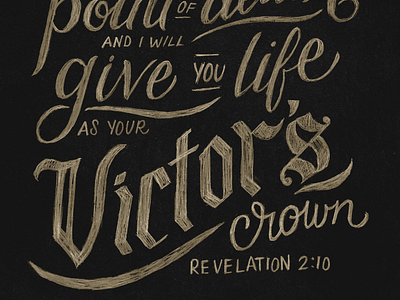 point OF death
AND I WILL
give YOU life
AS YOUR
Victor's
crown
REVELATION 2:10